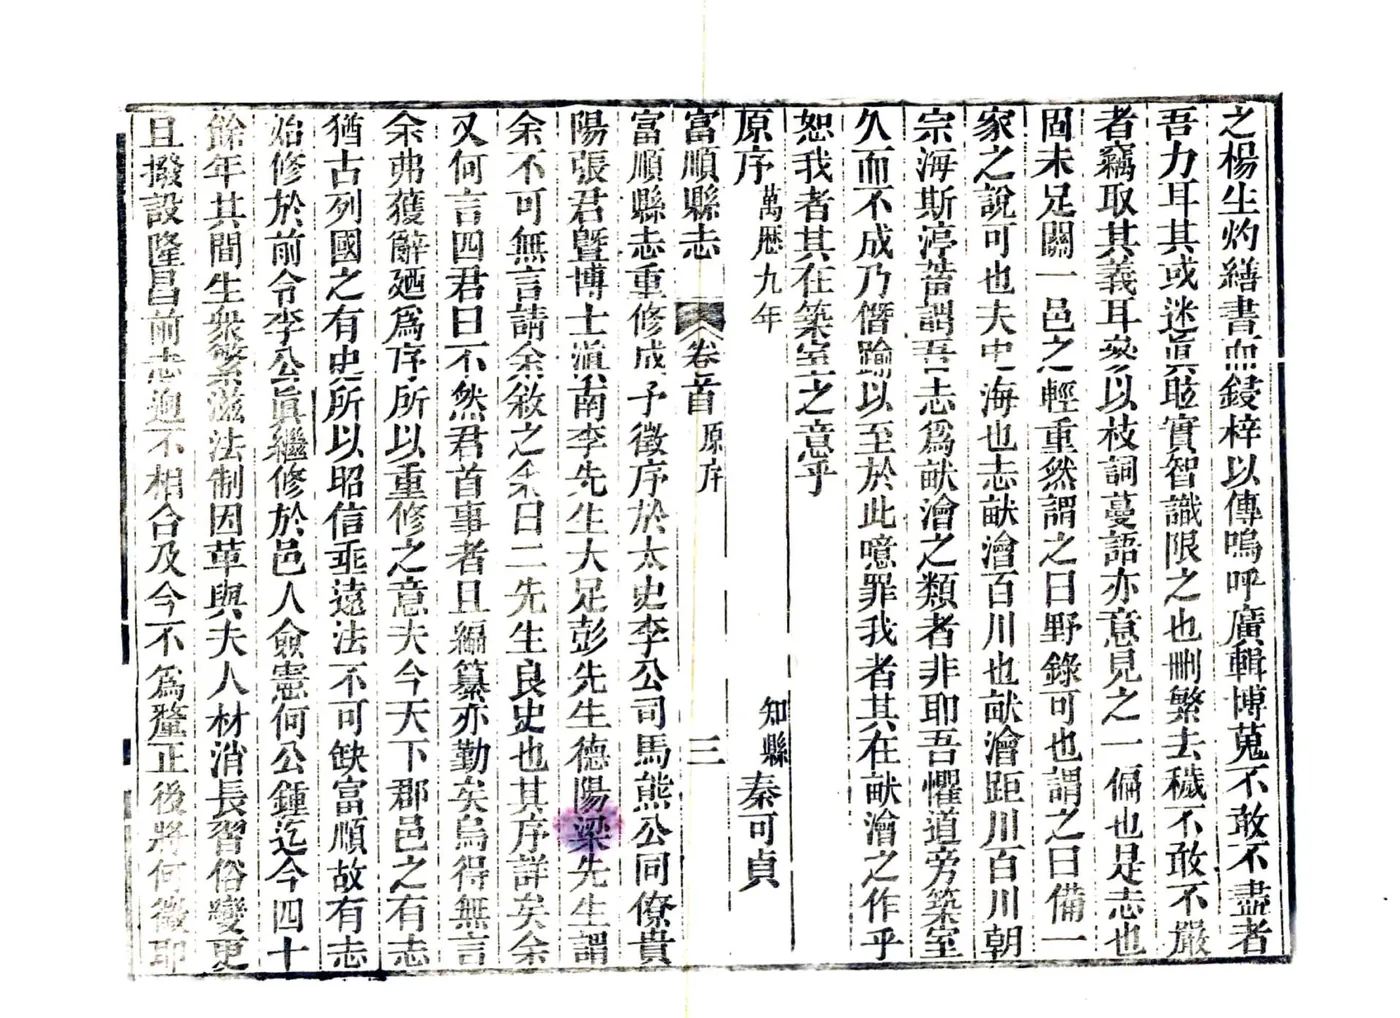 之楊生灼繕書而鋟梓以傳嗚呼廣輯博蒐不敢不盡者
吾力耳其或迷眞眩實智識限之也刪繁去穢不敢不嚴
者竊取其義耳參以枝詞蔓語亦意見之一偏也是志也
固未足關一邑之輕重然謂之曰野錄可也謂之曰備一
家之說可也夫史海也志畎澮百川也畎澮距川百川朝
宗海斯渟蓄謂吾志爲畎澮之類者非耶吾懼道旁築室
久而不成乃僭踰以至於此噫罪我者其在畎澮之作乎
恕我者其在築室之意乎
原序 萬歷九年 知縣 秦可貞
富順縣志 卷首 原序 三
富順縣志重修成予徵序於太史李公司馬熊公同僚貴
陽張君曁博士滇南李先生大足彭先生德陽梁先生謂
余不可無言請余敘之余曰二先生良史也其序詳矣余
又何言四君曰不然君首事者且編纂亦勤矣烏得無言
余弗獲辭廼爲序所以重修之意夫今天下郡邑之有志
猶古列國之有史所以昭信垂遠法不可缺富順故有志
始修於前令李公眞繼修於邑人僉憲何公鍾迄今四十
餘年其間生衆繁滋法制因革與夫人材消長習俗變更
且撥設隆昌前志迥不相合及今不爲釐正後將何徵耶